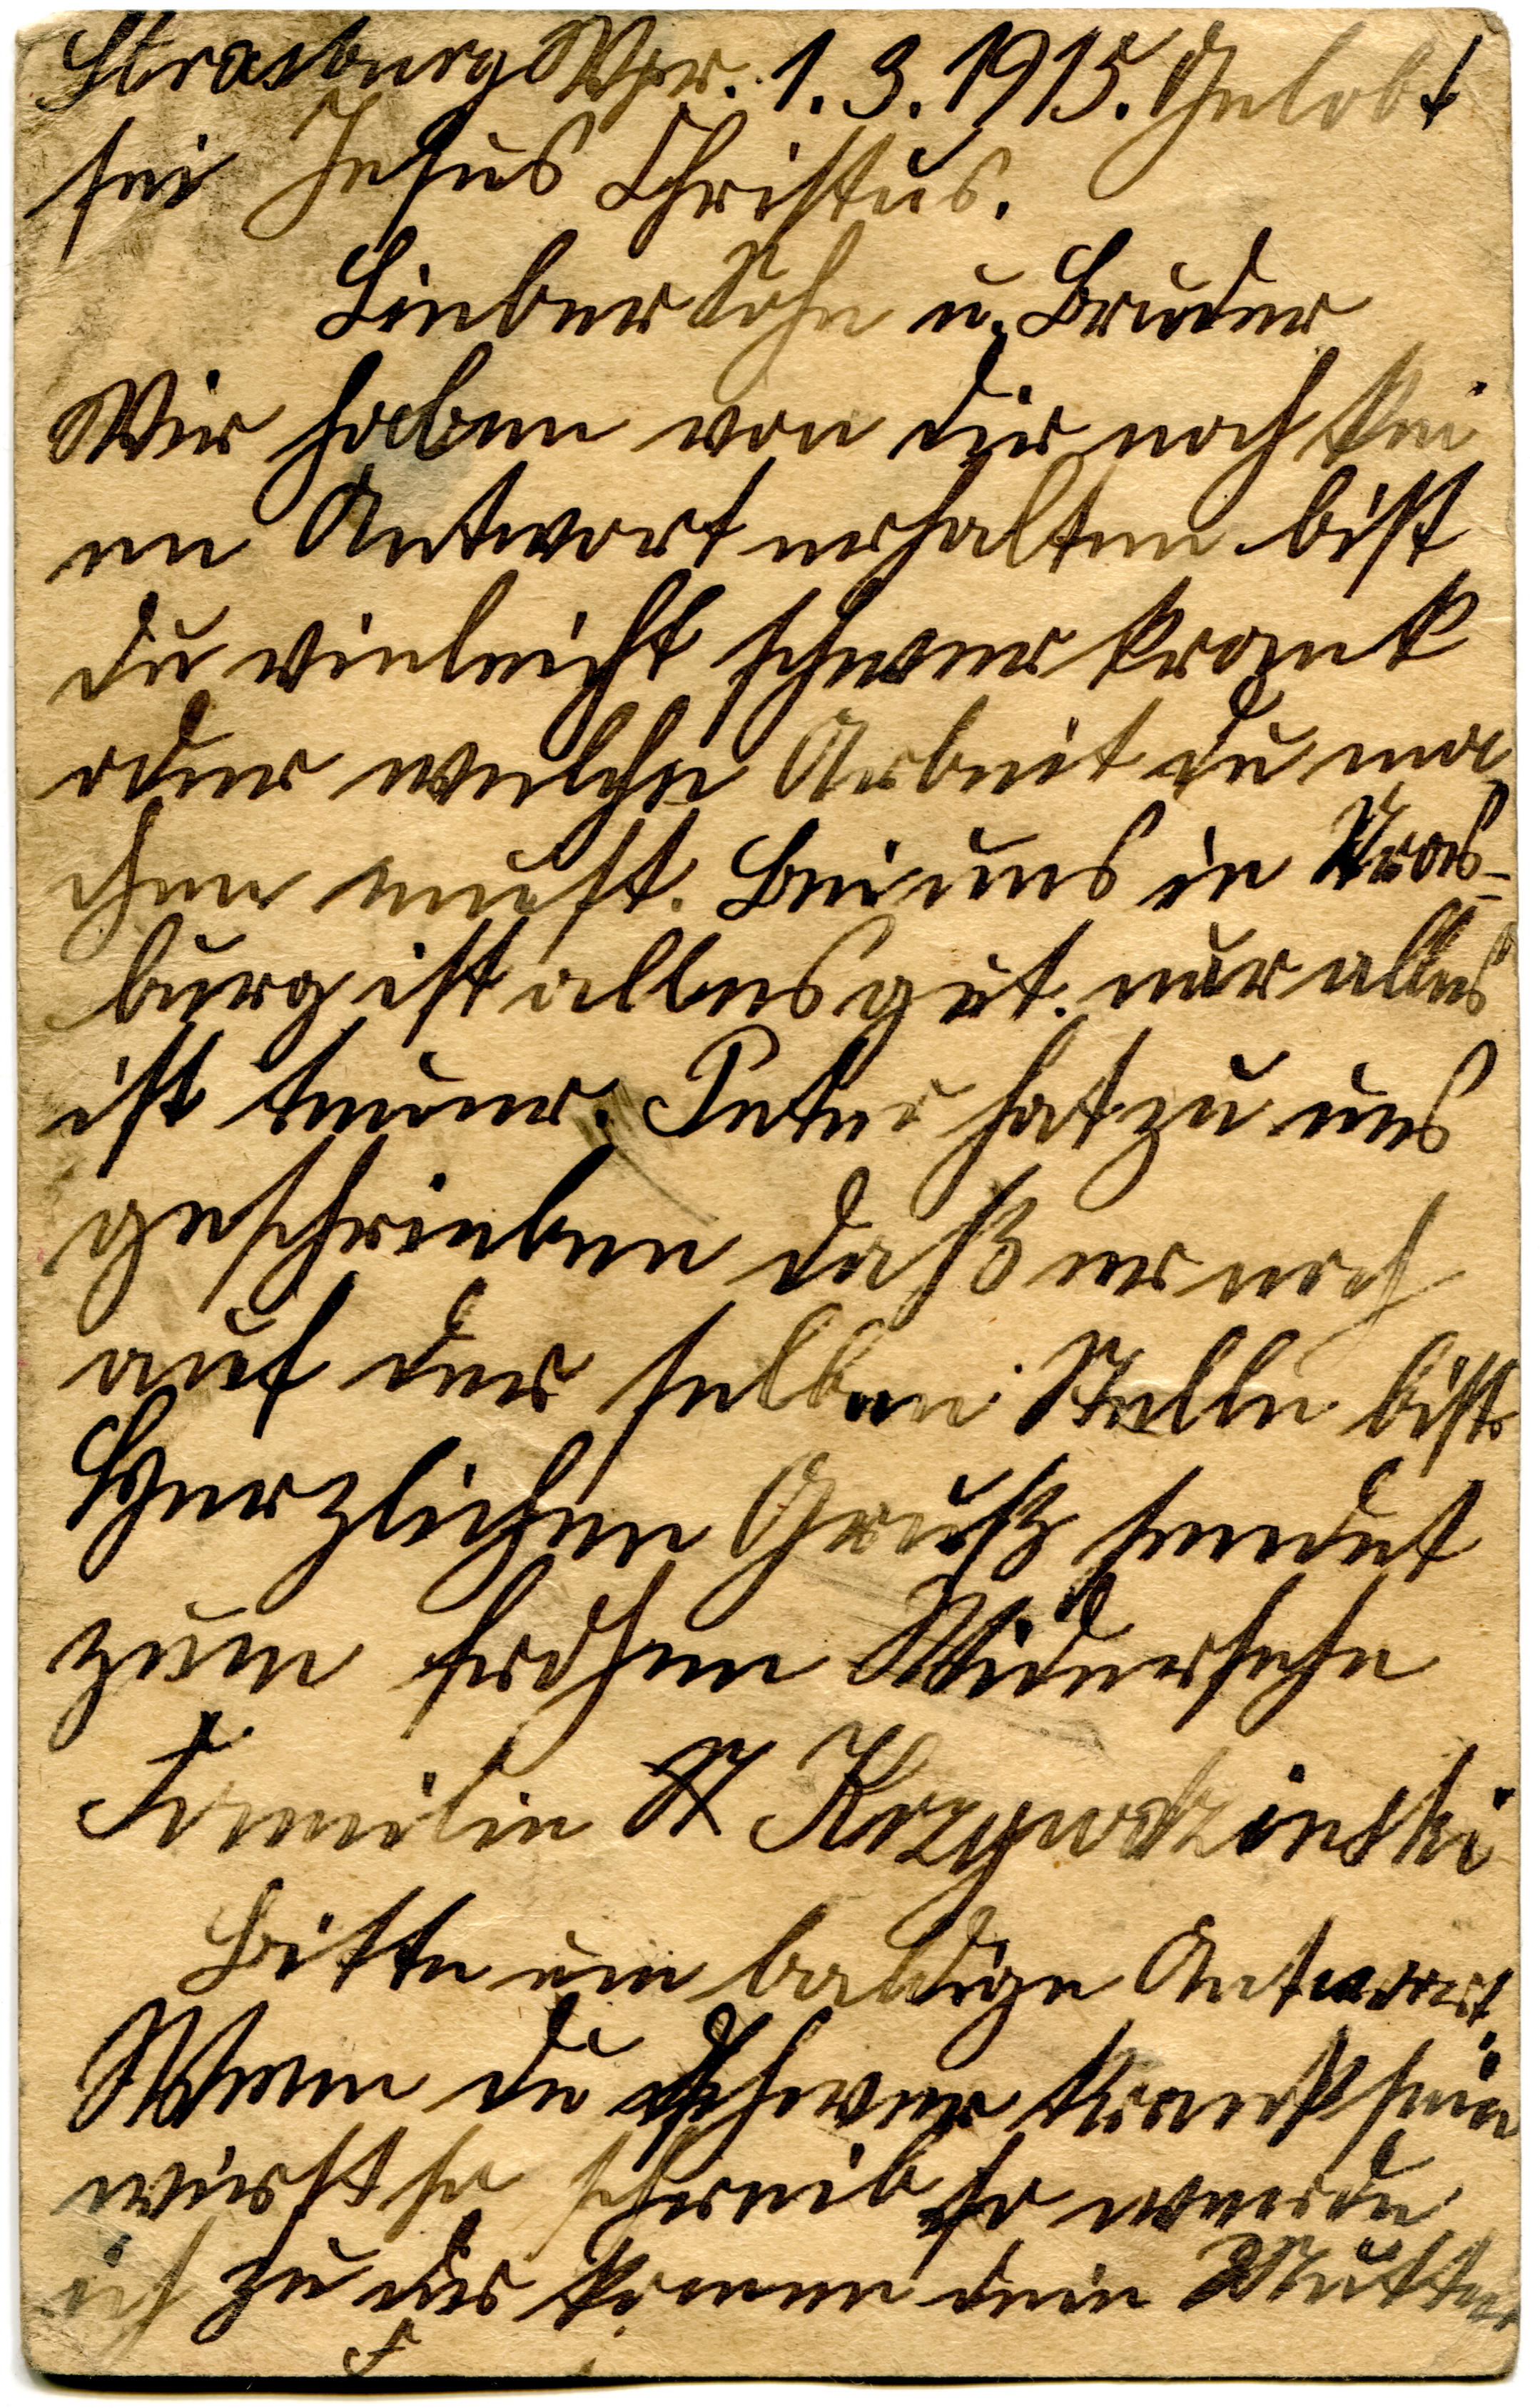 Strasburg Wpr. 1.3.1915. Gelobt
sei Jesus Christus.
Lieber Sohn u. Bruder
Wir haben von dir noch kei
en Antwort erhalten bist
du vieleicht schwer krank
oder welche Arbeit du ma
chen must. Bei uns in Stras-
burg ist alles gut. nur alles
ist teuer. Peter hat zu uns
geschrieben daß er noch
auf der selben Stelle bist
Herzlichen Gruß sendet
zum frohen Widersehn
Familie St Krzywdzinski
Bitte um baldige Antwort.
Wenn du schwer krank sein
wirst so schreib so werde
ich zu dir komen dein Mutter